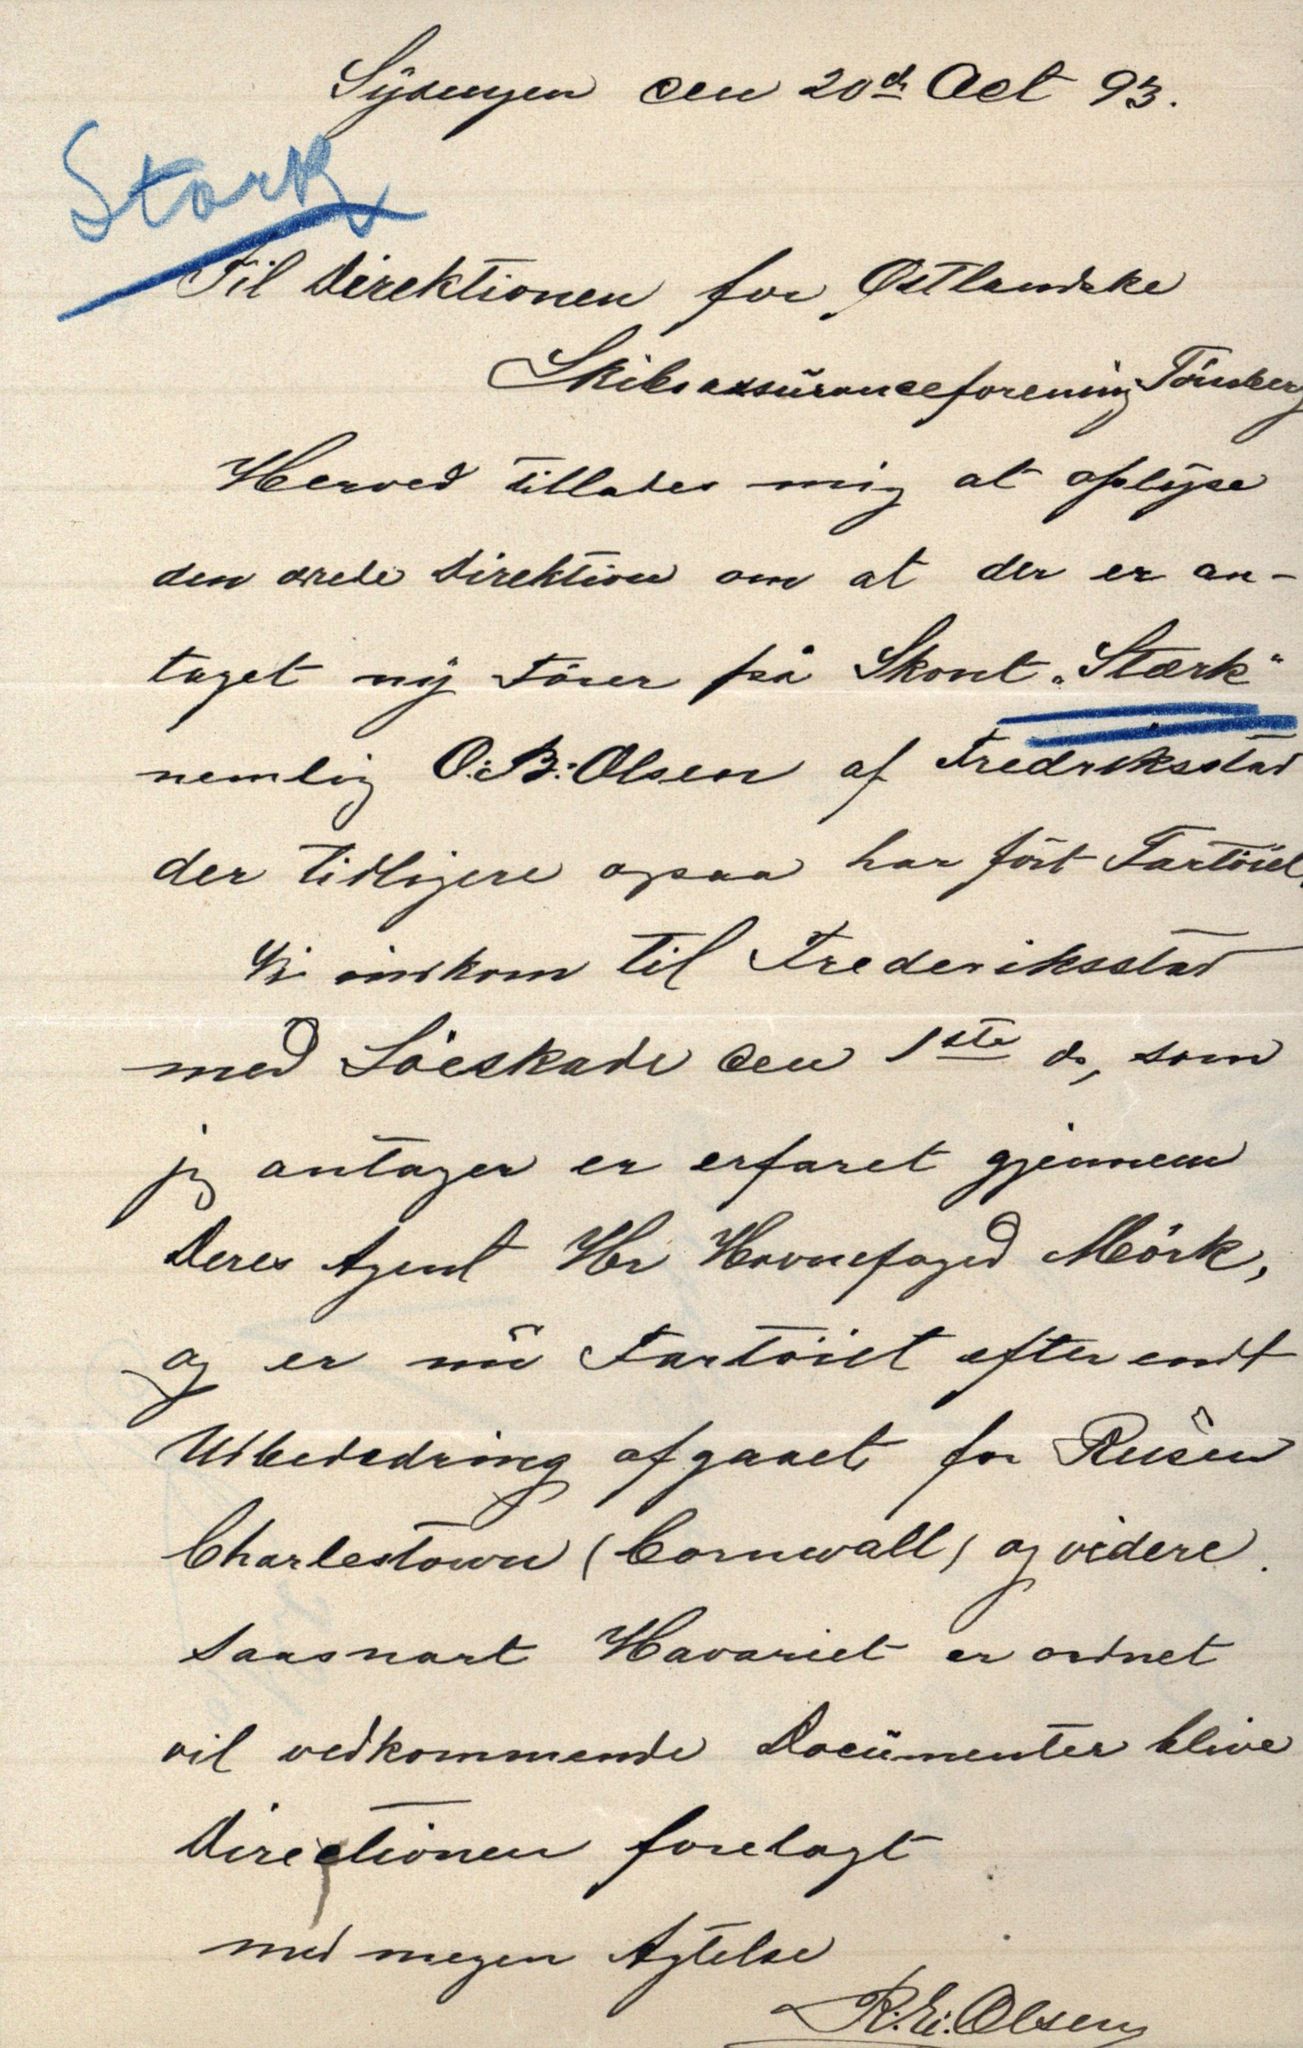 den 20de Oct 93.
Stærk
Til Direktionen for Østlandske
Skibsassuranceforening Tönsberg
Herved tillades mig at oplyse
den ærede Direktion om at der er an-
taget ny Förer på Skont „Stærk"
nemlig O. B. Olsen af Fredriksstad
der tidligere ogsaa har fört Fartöiet.
Vi indkom til Frederiksstad
med Söeskade den 1ste ds, som
jeg antager er erfaret gjennem
Deres Agent Hr Havnefoged Mörk,
og er nu Fartöiet efter endt
Udbedsdring afgaaet for Reisen
Charlestown (Cornwall) og videre.
saasnart Havariet er ordnet
vil vedkommende Documenter blive
Directionen forelagt
med megen Agtelse
R. E. Olsen